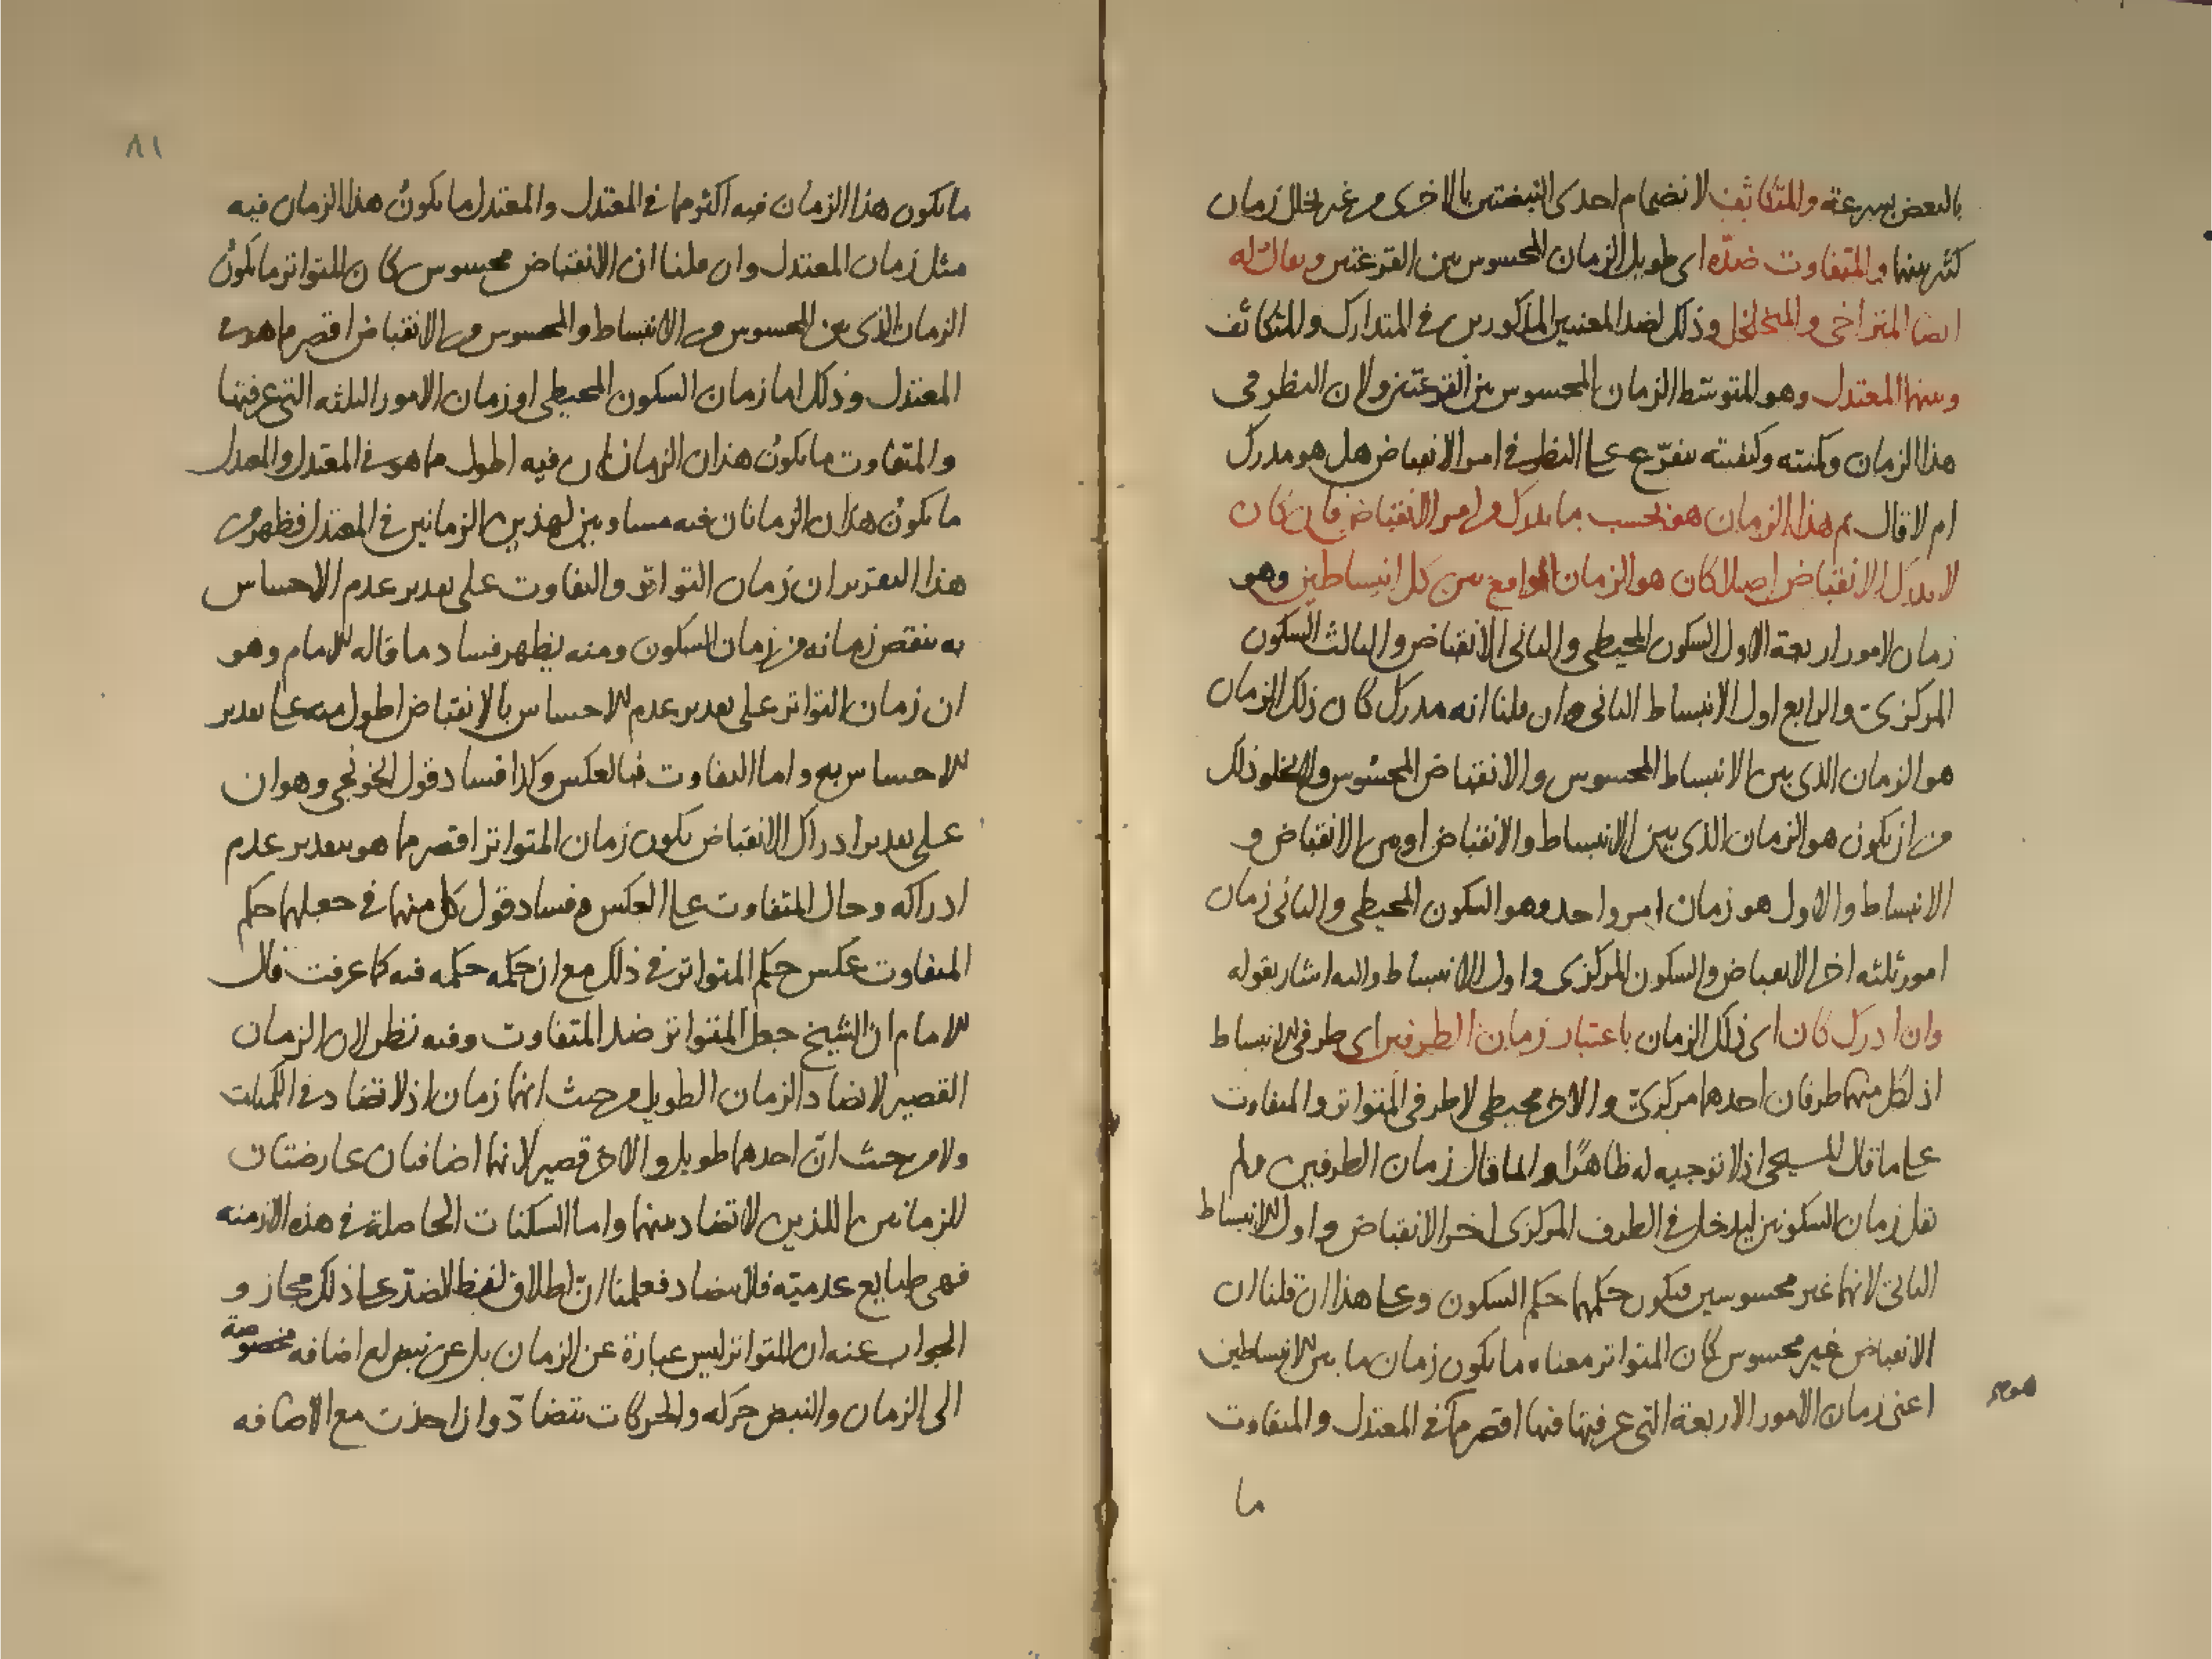 بالبعض بسرعة والمتكاثف لانضمام احدى النبضتين بالاخرى من غير تخلل زمان
كثير بينهما والمتفاوت ضدّه اى طويل الزمان المحسوس بين القرعتين ويقال له
ايضا المتراخى والمتخلخل وذلك لضد المعنيين المذكورين فى المتدارك والمتكاثف
وبينهما المعتدل وهو المتوسّط الزمان المحسوس بين القرعتين ولان النظر فى
هذا الزمان وكميته وكيفيته يتفرّع على النظر فى امر الانقباض هل هو مدرك
ام لا قال ثم هذا الزمان هو بحسب ما يدرك من امر الانقباض فان كان
لا يدرك الانقباض اصلا كان هو الزمان الواقع بين كل انبساطين وهو
زمان لامور اربعة الاول السكون المحيطى والثانى الانقباض والثالث السكون
المركزى والرابع اول الانبساط الثانى وان قلنا انه مدرك كان ذلك الزمان
هو الزمان الذى بين الانبساط المحسوس والانقباض المحسوس ولا يخلو ذلك
من ان يكون هو الزمان الذى بين الانبساط والانقباض او بين الانقباض و
الانبساط والاول هو زمان امر واحد وهو السكون المحيطى والثانى زمان
امور ثلثه اخر الانقباض والسكون المركزى واول الانبساط واليه اشار بقوله
وان ادرك كان اى ذلك الزمان باعتبار زمان الطرفين اى طرفى الانبساط
اذ لكل منهما طرفان احدهما مركزىّ والاخر محيطى لا طرفى المتواتر والمتفاوت
على ما قال المسيحى اذ لا توجيه له ظاهرًا وانما قال زمان الطرفين ولم
يقل زمان السكونين ليدخل فى الطرف المركزى اخر الانقباض واول الانبساط
الثانى لانهما غير محسوسين فيكون حكمهما حكم السكون وعلى هذا ان قلنا ان
الانقباض غير محسوس كان المتواتر معناه ما يكون زمان ما بين الانبساطين
اعنى زمان الامور الاربعة التى عرفتها فيها اقصر مما فى المعتدل والمتفاوت
ما
٨١
ما يكون هذا الزمان فيه اكثر مما فى المعتدل والمعتدل ما يكونُ هذا الزمان فيه
مثل زمان المعتدل وان قلنا ان الانقباض محسوس كان المتواتر ما يكونُ
الزمان الذى بين المحسوس من الانبساط والمحسوس من الانقباض اقصر مما هو فى
المعتدل وذلك اما زمان السكون المحيطى او زمان الامور الثلثه التى عرفتها
والمتفاوت ما يكونُ هذان الزمانان فيه اطول مما هو فى المعتدل والمعتدل
ما يكونُ هذان الزمانان فيه مساويين لهذين الزمانين فى المعتدل فظهر من
هذا التقرير ان زمان التواتر والتفاوت على تقدير عدم الاحساس
به ينقص زمانه من زمان السكون ومنه يظهر فساد ما قاله الامام وهو
ان زمان التواتر على تقدير عدم الاحساس بالانقباض اطول منه على تقدير
الاحساس به واما التفاوت فبالعكس وكذا فساد قول الخونجى وهو ان
على تقدير ادراك الانقباض يكون زمان المتواتر اقصر مما هو بتقدير عدم
ادراكه وحال المتفاوت على العكس وفساد قول كل منهما فى جعلهما حكم
المتفاوت عكس حكم المتواتر فى ذلك مع ان حكمه حكمه فيه كما عرفت قال
الامام ان الشيخ جعل المتواتر ضد المتفاوت وفيه نظر لان الزمان
القصير لا يضاد الزمان الطويل من حيث انهما زمان اذ لا تضاد فى الكميات
ولا من حيث انّ احدهما طويل والاخر قصير لانهما اضافتان عارضتان
للزمانين اللذين لا تضاد بينهما واما السكنات الحاصلة فى هذه الازمنه
فهى طبايع عدميّه فلا تضاد فعلمنا انّ اطلاق لفظ الضدّ على ذلك مجاز و
الجواب عنه ان المتواتر ليس عبارة عن الزمان بل عن نبض له اضافه مخصوصة
الى الزمان والنبض حركه والحركات تتضادّ وان اخذت مع الاضافه